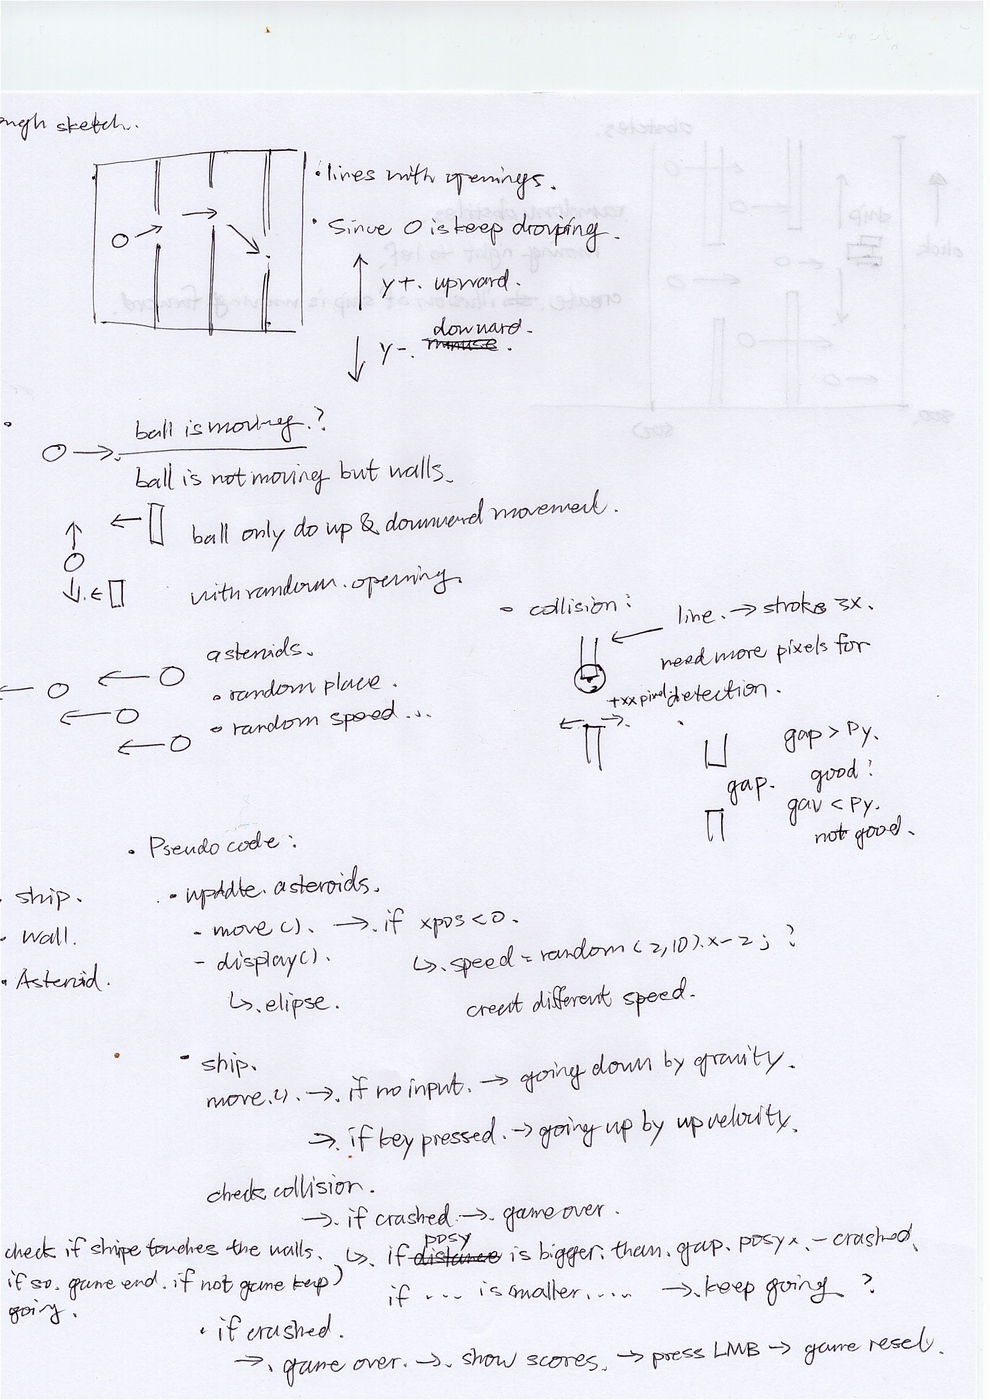 ough sketch.
• lines with openings.
• Since O is keep dropping.
y+. upward.
downard.
y-. minuse.
• ball is moving.?
ball is not moving but walls.
ball only do up & downward movement.
with random. opening.
• collision:
line. → stroke 3x.
need more pixels for
+xx pixel detection.
asteroids.
• random place.
• random speed...
gap > Py.
gap. good!
gav < Py.
not good.
• Pseudo code:
• ship.
• wall.
• Asteroid.
• update. asteroids.
- move(). →. if xpos < 0.
- display(). ↳. speed = random (2,10). x-2; ?
↳. elipse. creat different speed.
• ship.
move.(). →. if no input. → going down by gravity.
→. if key pressed. → going up by up velocity.
check collision.
→. if crashed → game over.
posy
check if shipe touches the walls. ↳. if distance is bigger. than. gap. posy x. - crashed.
if so. game end. if not game keep)
going.
if ... is smaller..... → keep going ?
• if crashed.
→. game over. →. show scores. → press LMB → game reset.
obstacles.
ship
click
random obsticles
moving right to left.
create illusion of ship is moving forward.
800.